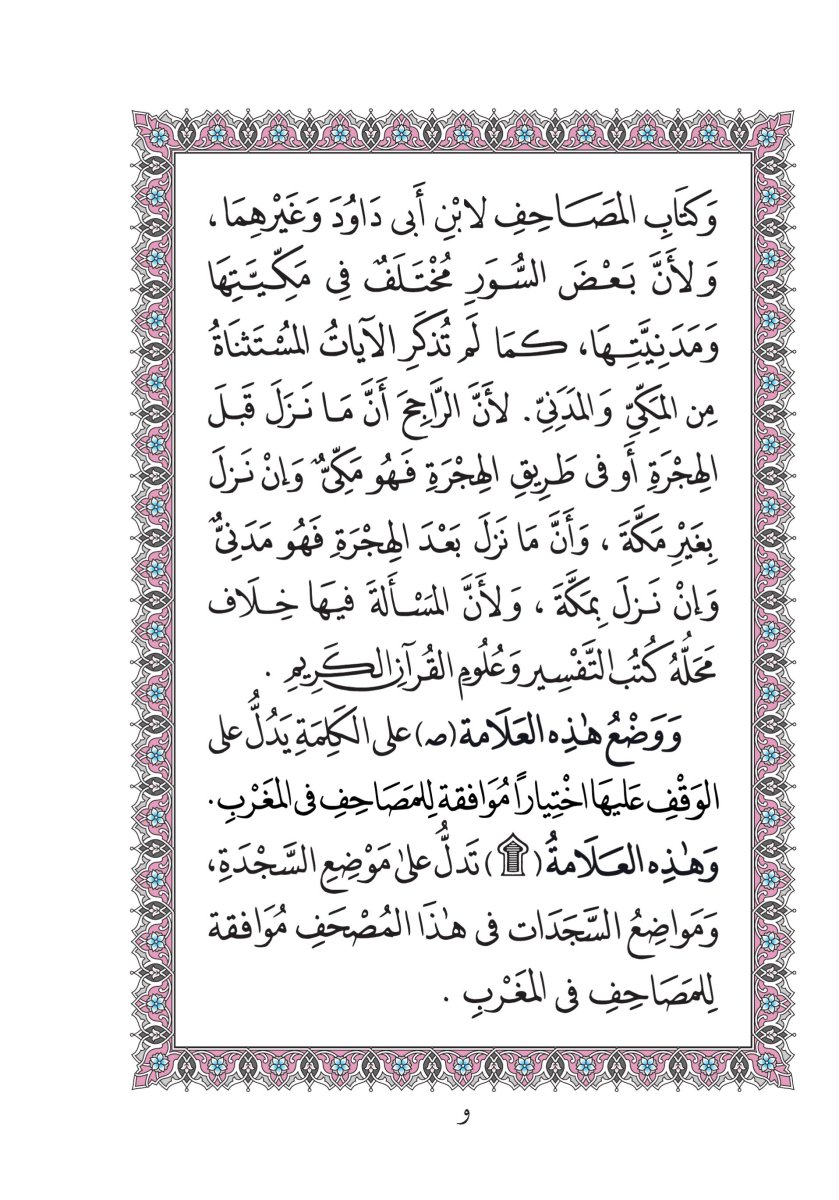 وَكتَابِ المصَاحِفِ لابْنِ أَبى دَاوُدَ وَغَيْرِهِمَا،
وَلأَنَّ بَعْضَ السُّوَرِ مُخْتَلَفٌ فِى مَكِّيَّتِهَا
وَمَدَنِيَّتِهَا، كمَا لَم تُذكَرِ الآيَاتُ المُسْتَثنَاةُ
مِن المَكِىِّ وَالمدَنِىِّ. لأَنَّ الرَّاجِحَ أَنَّ مَا نَزَلَ قَبْلَ
الهِجْرَةِ أَو فى طَرِيقِ الهِجْرَةِ فَهُو مَكِّىٌّ وَإنْ نَزلَ
بِغَيْرِ مَكَّةَ ، وَأَنَّ مَا نَزلَ بَعْدَ الهِجْرَةِ فَهُو مَدَنىٌّ
وَإنْ نَزلَ بِمَكَّةَ ، وَلأَنَّ المَسْأَلةَ فيهَا خِلَاف
مَحَلُّهُ كُتُبُ التَّفْسِيرِ وَعُلُومِ القُرآنِ الكَرِيمِ .
وَوَضْعُ هٰذِهِ العَلَامة (صـ) عَلى الكَلِمَةِ يَدُلُّ عَلى
الوَقْفِ عَليهَا اخْتِياراً مُوَافقة لِلمصَاحِفِ فى المَغْربِ.
وَهٰذِه العَلَامةُ (۩) تَدلُّ عَلىٰ مَوْضِعِ السَّجْدَةِ،
وَمَواضِعُ السَّجَدَات فى هٰذَا المُصْحَفِ مُوَافقة
لِلمَصَاحِفِ فى المَغَرْبِ .
و